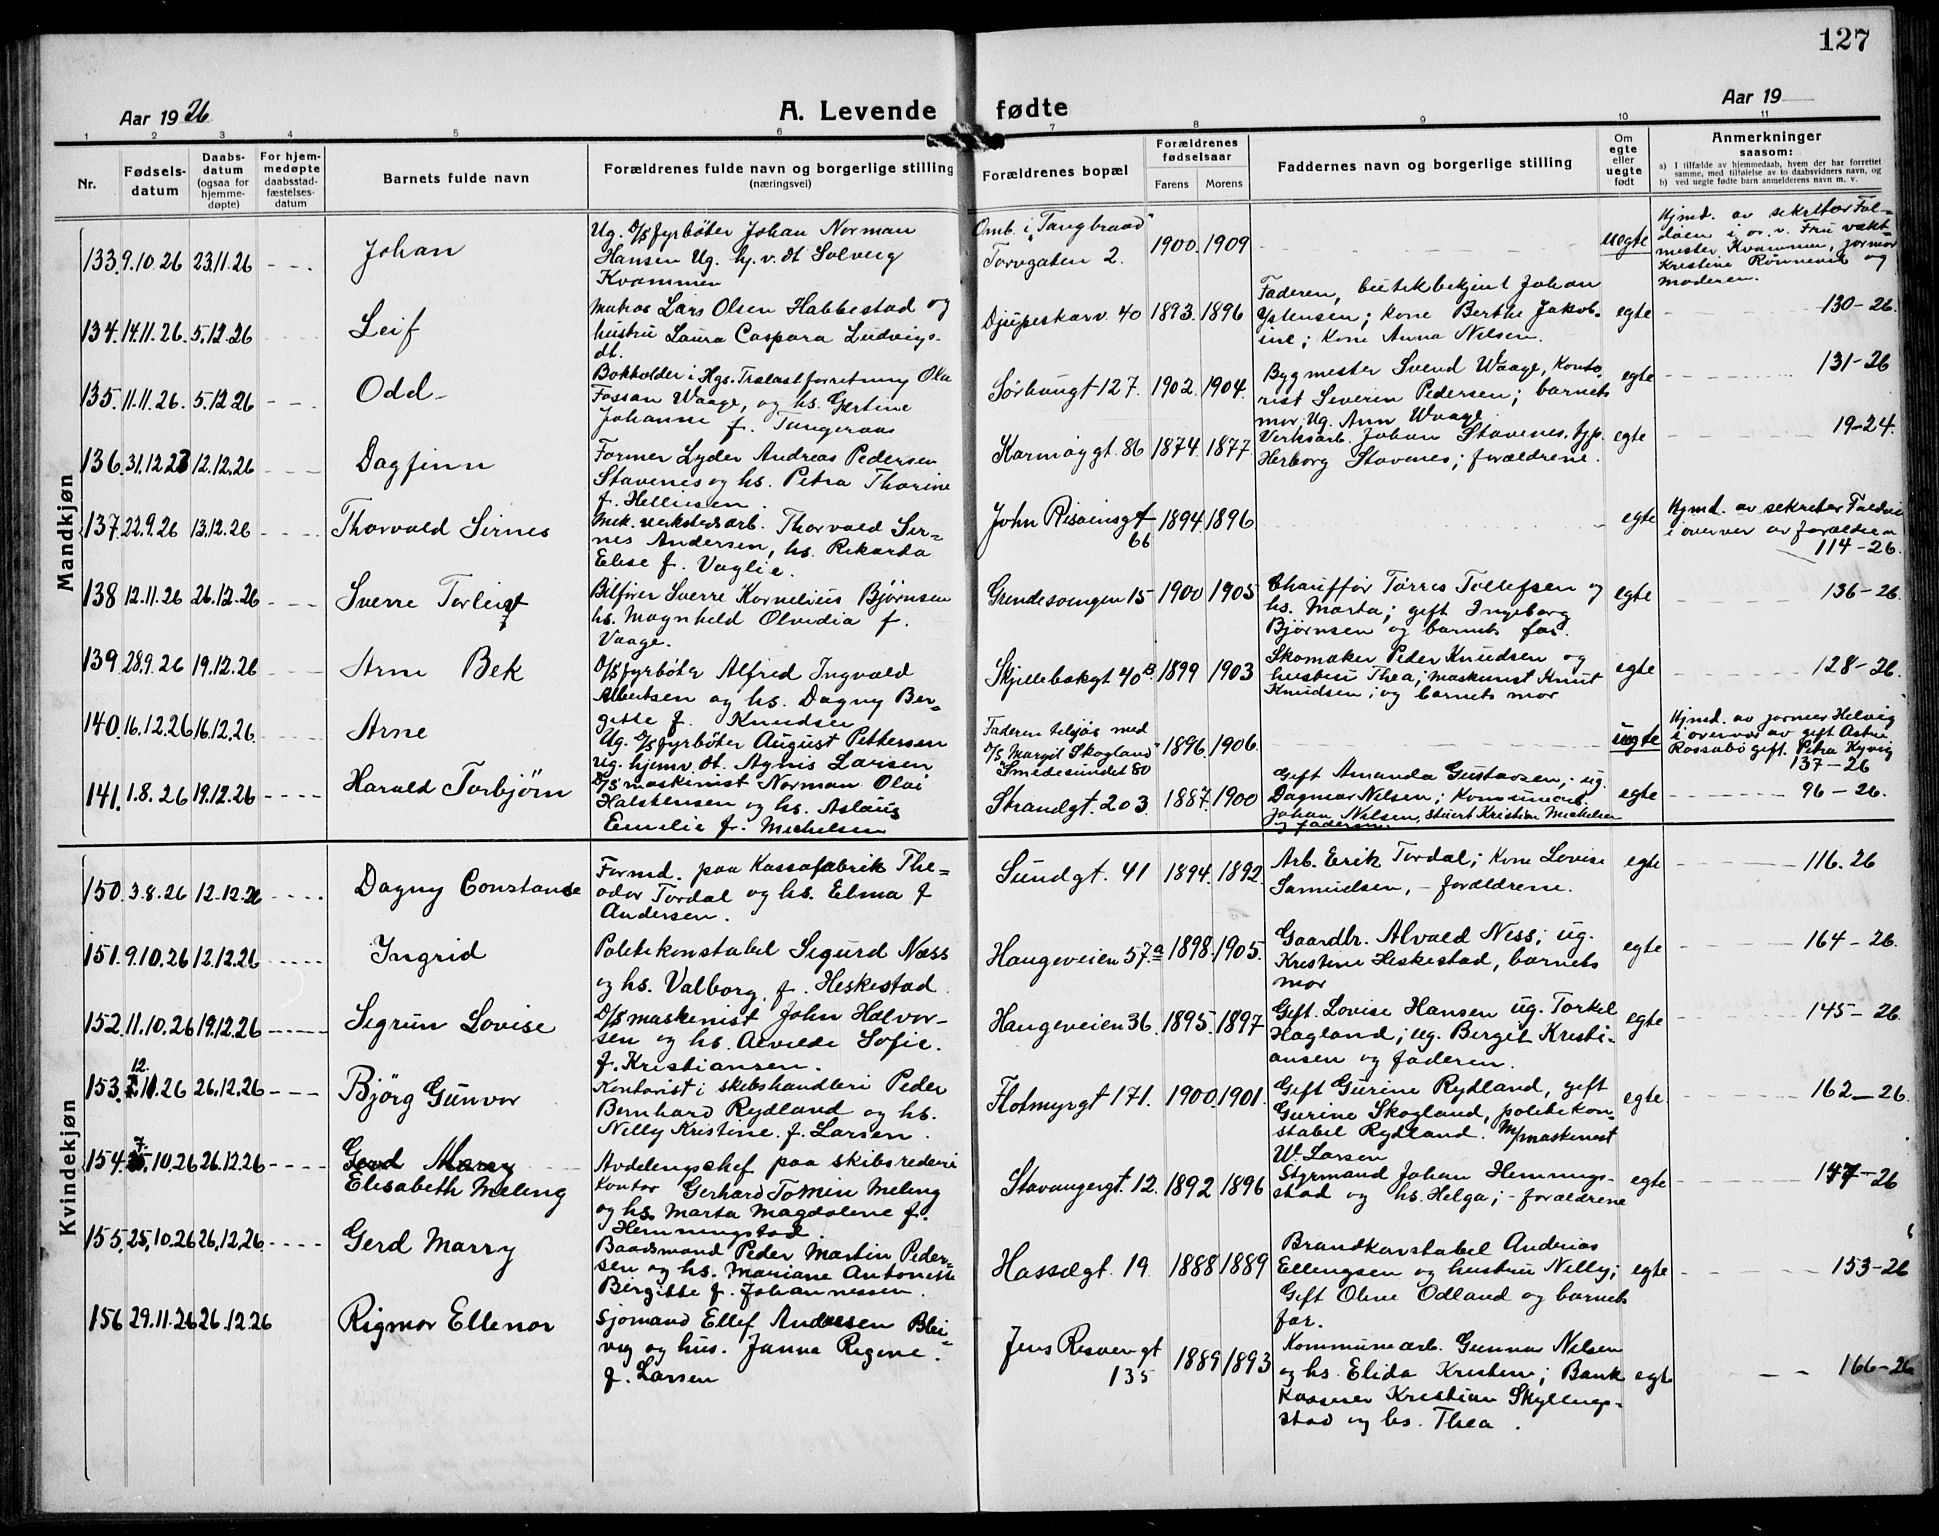 127
Aar 1926
A. Levende fødte
Aar 19
1 2 3 4 5 6 7 8 9 10 11
Nr.
Fødsels-
datum
Daabs-
datum
(ogsaa for
hjemme-
døpte)
For hjem-
medøpte
daabsstad-
fæstelses-
datum
Barnets fulde navn
Forældrenes fulde navn og borgerlige stilling
(næringsvei)
Forældrenes bopæl
Forældrenes
fødselsaar
Farens Morens
Faddernes navn og borgerlige stilling
Om
egte
eller
uegte
født
Anmerkninger
saasom:
a) I tilfælde av hjemmedaab, hvem der har forrettet
samme, med tilføielse av to daabsvidners navn, og
b) ved uegte fødte barn anmelderens navn m. v.
Mandkjøn
133. 9.10.26 23.11.26 Johan
Ug. D/S fyrbøter Johan Norman
Hansen Ug. hj. v. dt Solveig
Kvammen
Omb. i "Tangbraad"
Torvgaten 2. 1900. 1909 uegte
Hjmd. av sekretær Fal-
døen i ov. v. Fru vakt-
mester Kvammen, jormor
Kristine Rønnevik og
moderen.
134. 14.11.26. 5.12.26 Leif
Matros Lars Olsen Habbestad og
hustru Laura Caspara Ludvigs-
dt.
Djupeskarv. 40 1893. 1896
Faderen, butikbetjent Johan
Ystensen; kone Berthe Jakob-
ine; Kone Anna Nilsen.
egte 130-26.
135. 11.11.26. 5.12.26 Odd
Bokholder i Hgs. Trælastforretning Ola
Fossan Waage, og hs. Gertine
Johanne f. Tungeraas
Sørhaugt 127. 1902. 1904.
Bygmester Svend Waage, Konto-
rist Severin Pedersen; barnets
mor, Ug. Ann Waage
egte 131-26
136. 31.12.23 12.12.26 Dagfinn
Former Lyder Andreas Pedersen
Stavenes og hs. Petra Thorine
f. Helliesen.
Karmøygt. 86 1874. 1877
Verksarb. Johan Stavenes, frp.
Herborg Stavenes; forældrene.
egte 19-24.
137. 22.9.26 13.12.26 Thorvald Sirnes
Mek. verkstedsarb. Thorvald Sir-
nes Andersen, hs. Rikarda
Elise f. Vaglie.
John Risøensgt
66 1894. 1896 egte
Hjmd. av sekretær Faldøi
i overver av forældrene
114-26.
138 12.11.26 26.12.26 Sverre Torleif
Bilfører Sverre Kornelius Bjørnsen
hs. Magnhild Olvidia f.
Vaage.
Grindesvingen 15 1900 1905
Chauffør Tørres Tollefsen og
hs. Marta; gift Ingeborg
Bjørnsen og barnets far.
egte 136-26.
139 28.9.26 19.12.26 Arne Bek
D/S fyrbøter Alfred Ingvald
Albertsen og hs. Dagny Ber-
gitte f. Knudsen
Skjillebekgt 40B 1899 1903
Skomaker Peder Knudsen og
hustru Thea; maskinist Knut
Knudsen; og barnets mor
egte 128-26.
140. 16.12.26 16.12.26. Arne
Ug. D/S fyrbøter August Pettersen
ug. hjemv. dt. Agnis Larsen
Faderen tilsjøs med
D/S "Margit Skogland"
Smedesundet 80 1896. 1906. uegte
Hjmd. av jormor Helvig
i overvær av gift Astri
Rossabö gift. Petra Kyvig
137-26
141. 1.8.26 19.12.26 Harald Torbjörn
D/S maskinist Norman Olai
Halstensen og hs. Aslaug
Emelie f. Michelsen
Strandgt. 203. 1887. 1900
Gift Amanda Gustavsen; ug.
Dagmar Nilsen; Kommunearb.
Johan Nilsen, stuert Kristian Michelsen
og faderen.
egte 96-26.
Kvindekjøn
150. 3.8.26 12.12.26 Dagny Constanse
Formd. paa Kassefabrik The-
odor Tordal og hs. Elma f
Andersen.
Sundgt. 41 1894. 1892.
Arb. Eerik Tordal; Kone Lovise
Samuelsen, - forældrene.
egte 116.26
151. 9.10.26 12.12.26 Ingrid
Politikonstabel Sigurd Næss
og hs. Valborg. f. Heskestad
Haugeveien 57a 1898. 1905.
Gaardbr. Alvald Ness; ug.
Kristine Heskestad, barnets
mor
egte 164-26.
152. 11.10.26 19.12.26 Sigrun Lovise
D/S maskinist John Halvor-
sen og hs. Alvilde Sofie.
f. Kristiansen.
Haugeveien 36. 1895. 1897
Gift. Lovise Hansen ug. Torkel
Hagland; ug. Berget Kristi-
ansen og faderen.
egte 145-26.
153. 12.11.26 26.12.26 Bjørg Gunvor
Kontorist i skibshandleri Peder
Bernhard Rydland og hs.
Nelly Kristine. f. Larsen.
Flotmyrgt 171. 1900. 1901.
Gift Gurine Rydland, gift
Gurine Skogland, politikon-
stabel Rydland. M/maskinist
W. Larsen
egte 162-26.
154. 7.10.26 26.12.26 Elisabeth Meling
Avdelingschef paa skibsrederi
kontor Gerhard Tomin Meling
og hs. Marta Magdalene f.
Hemmingstad
Stavangergt. 12. 1892 1896
Styrmand Johan Hemmings-
stad og hs. Helga; - forældrene
egte 147-26
155. 25.10.26 26.12.26 Gerd Marry
Baadsmand Peder Martin Peder-
sen og hs. Mariane Antonette
Birgitte f. Johannessen.
Hassélgt. 19 1888 1889
Brandkonstabel Andreas
Ellingsen og hustru Nelly;
Gift Oline Odland og barnets
far.
egte 153-26
156 29.11.26 26.12.26 Rigmor Ellenor
Sjömand Ellef Andersen Blei-
vig og hus. Janna Regine.
f. Larsen
Jens Risøengt
135 1889 1893
Kommunearb. Gunnar Nilsen
og hs. Elida Kristine; Bank
Kasserer Kristian Skyllings-
stad og hs. Thea.
egte 166-26